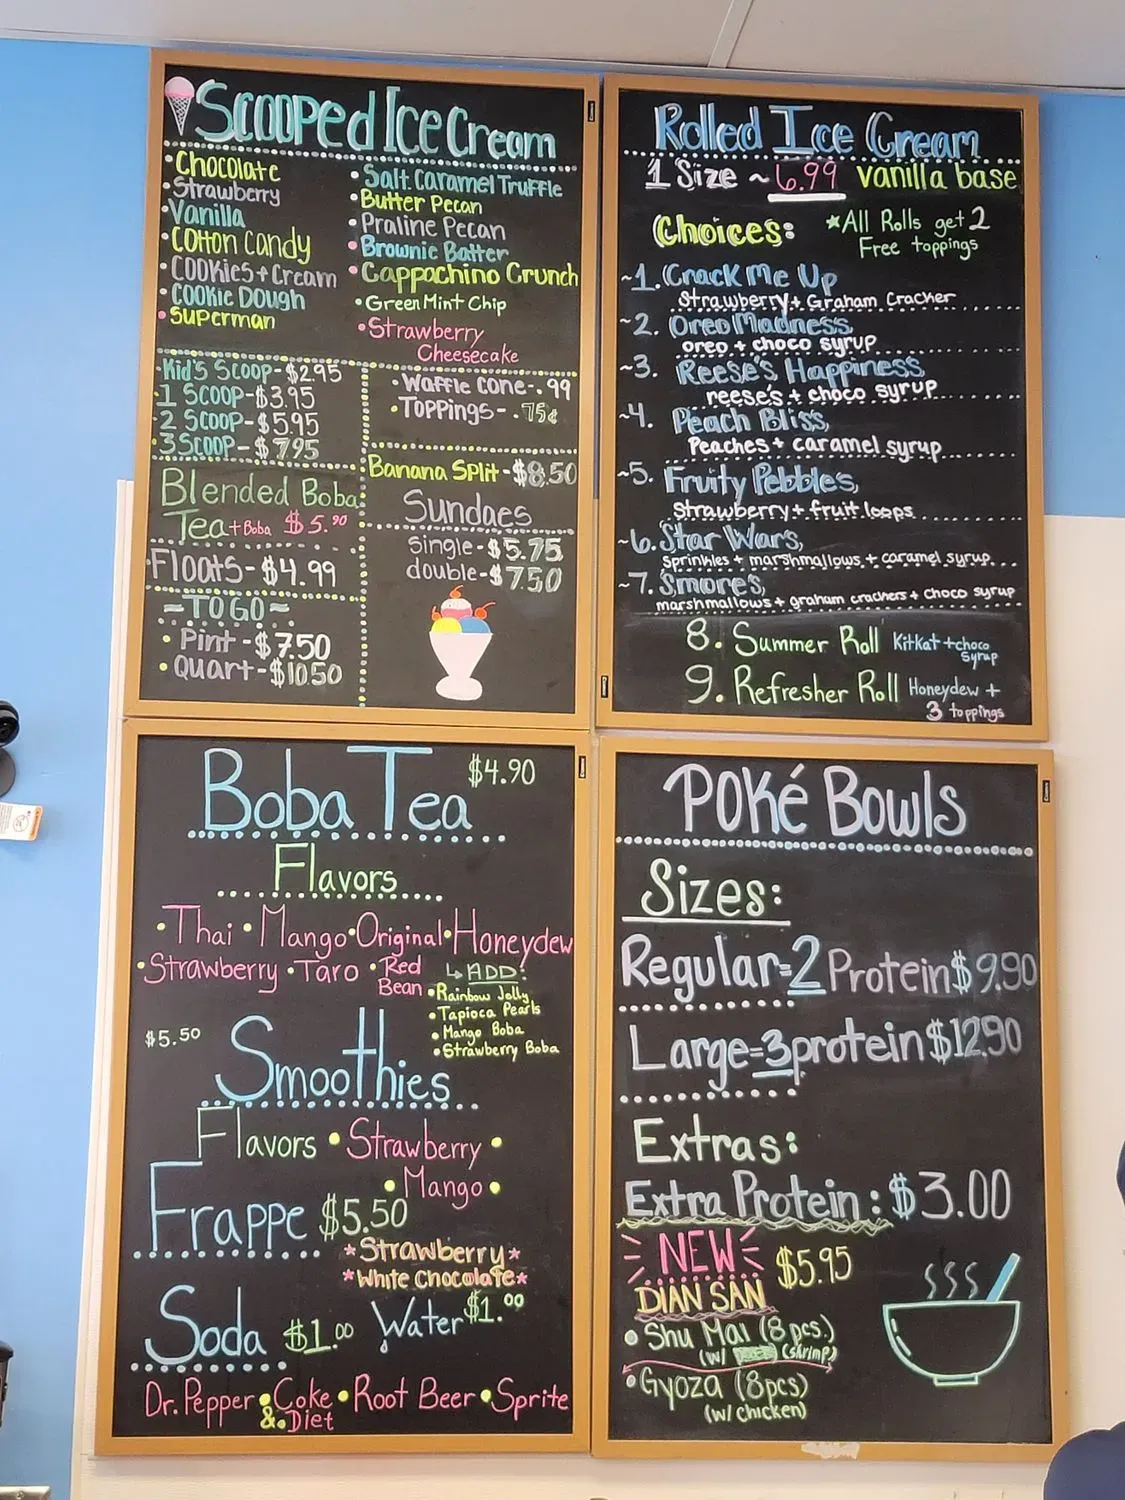 Scooped Ice Cream
• Chocolate
• Strawberry
• Vanilla
• Cotton Candy
• Cookies + Cream
• Cookie Dough
• Superman
• Salt Caramel Truffle
• Butter Pecan
• Praline Pecan
• Brownie Batter
• Cappachino Crunch
• Green Mint Chip
• Strawberry
Cheesecake
Kid's Scoop - $2.95
1 Scoop - $3.95
2 Scoop - $5.95
3 Scoop - $7.95
• Waffle Cone - .99
• Toppings - .75¢
Blended Boba
Tea + Boba $5.90
Floats - $4.99
~ TO GO ~
• Pint - $7.50
• Quart - $10.50
Banana Split - $8.50
Sundaes
Single - $5.75
double - $7.50
Rolled Ice Cream
1 Size ~ 6.99 vanilla base
Choices:
*All Rolls get 2
Free toppings
~1. Crack Me Up
Strawberry + Graham Cracker
~2. Oreo Madness
oreo + choco syrup
~3. Reese's Happiness
reese's + choco syrup
~4. Peach Bliss,
Peaches + caramel syrup
~5. Fruity Pebbles,
Strawberry + fruit loops
~6. Star Wars,
Sprinkles + marshmallows + caramel syrup
~7. Smores,
marshmallows + graham crackers + choco syrup
8. Summer Roll KitKat + choco
Syrup
9. Refresher Roll Honeydew +
3 toppings
Boba Tea $4.90
Flavors
• Thai • Mango • Original • Honeydew
• Strawberry • Taro • Red
Bean
↳ ADD:
• Rainbow Jelly
• Tapioca Pearls
• Mango Boba
• Strawberry Boba
$5.50
Smoothies
Flavors • Strawberry •
• Mango •
Frappe $5.50
*Strawberry*
*White Chocolate*
Soda $1.00 Water $1.00
Dr. Pepper • Coke • Root Beer • Sprite
& • Diet
Poké Bowls
Sizes:
Regular = 2 Protein $9.90
Large = 3 protein $12.90
Extras:
Extra Protein: $3.00
NEW
DIAN SAN $5.95
• Shu Mai (8 pcs.)
(w/ (shrimp)
• Gyoza (8pcs)
(w/ chicken)